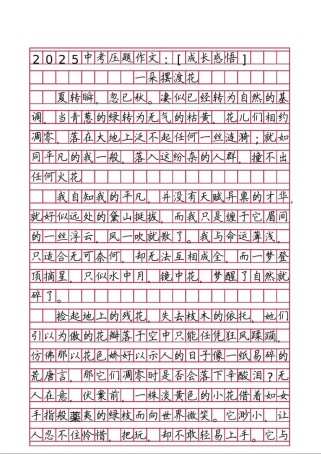 2025中考压题作文：[成长感悟]
一朵摆渡花
夏转瞬，忽已秋。凄似已经转为自然的基
调，当青葱的绿转为无气的枯黄，花儿们相约
凋零，落在大地上泛不起任何一丝涟漪；就如
同平凡的我一般，落入这纷杂的人群，撞不出
任何火花。
我自知我的平凡，并没有天赋异禀的才华，
就好似远处的黛山挺拔，而我只是缠于它眉间
的一丝浮云，风一吹就散了。我与命运薄浅，
只适合无可奈何，却无法互相成全，而一梦登
顶摘星，只似水中月，镜中花，梦醒了自然就
碎了。
捡起地上的残花，失去枝木的依托，她们
引以为傲的花瓣落于空中只能任凭狂风蹂躏，
仿佛那以花色娇好以示人的日子像一纸易碎的
荒唐言，那它们凋零时是否会落下辛酸泪？无
人在意，伏案前，一株淡黄色的小花借着如女
手指般荑的绿枝而向世界微笑。它渺小，让
人忍不住怜惜，把玩，却不敢轻易上手。它与